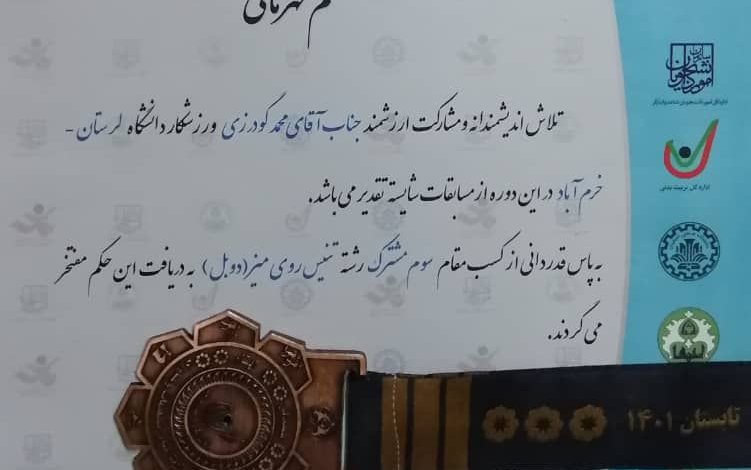 حکم قهرمانی
تلاش اندیشمندانه و مشارکت ارزشمند جناب آقای محمد گودرزی ورزشکار دانشگاه لرستان -
خرم آباد در این دوره از مسابقات شایسته تقدیر می باشد.
به پاس قدردانی از کسب مقام سوم مشترک رشته تنیس روی میز (دوبل) به دریافت این حکم مفتخر
می گردند.
سازمان
امور دانشجویان
اداره کل تربیت بدنی
تابستان ۱۴۰۱